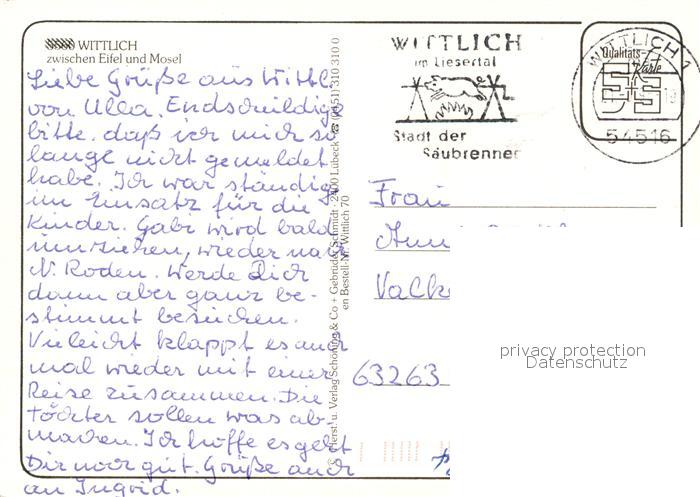 WITTLICH
zwischen Eifel und Mosel
Liebe Grüße aus Wittl
von Ulla. Endschuldige
bitte, daß ich mich so
lange nicht gemeldet
habe. Ich war ständig
im Einsatz für die
Kinder. Gabi wird bald
umziehen, wieder nach
N. Roden. Werde Dich
dann aber ganz be-
stimmt besuchen.
Vieleicht klappt es auch
mal wieder mit einer
Reise zusammen. Die
Töchter sollen was ab
machen. Ich hoffe es geht
Dir noch gut. Grüße auch
an Ingrid.
Schöning & Co + Gebrüder Schmidt · 2400 Lübeck ☎ (0451) 310 310 0
en Bestell-Nr. Wittlich 70
WITTLICH
im Liesertal
Stadt der
Säubrenner
WITTLICH 1
54516
Qualitäts-
Karte
S+S
Frau
63263
privacy protection
Datenschutz